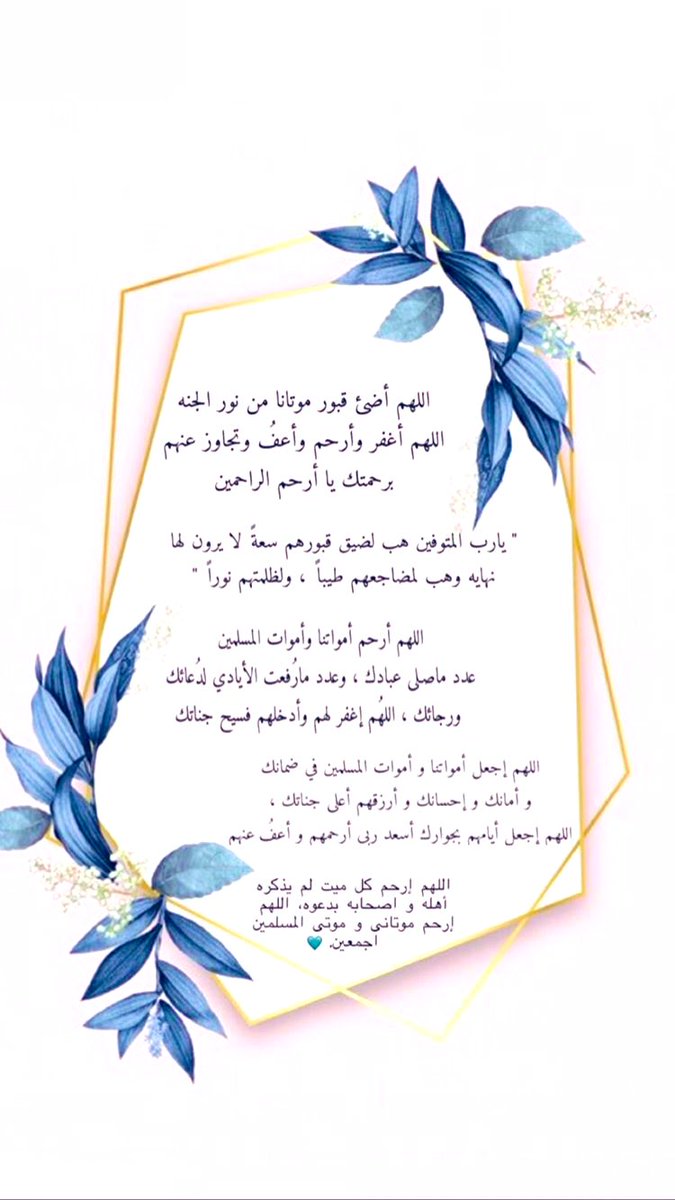 اللهم أضئ قبور موتانا من نور الجنه
اللهم أغفر وأرحم وأعفُ وتجاوز عنهم
برحمتك يا أرحم الراحمين
" يارب المتوفين هب لضيق قبورهم سعةً لا يرون لها
نهايه وهب لمضاجعهم طيباً ، ولظلمتهم نوراً "
اللهم أرحم أمواتنا وأموات المسلمين
عدد ماصلى عبادك ، وعدد مارُفعت الأيادي لدُعائك
ورجائك ، اللهُم إغفر لهم وأدخلهم فسيح جناتك
اللهم إجعل أمواتنا و أموات المسلمين في ضمانك
و أمانك و إحسانك و أرزقهم أعلى جناتك ،
اللهم إجعل أيامهم بجوارك أسعد ربى أرحمهم و أعفُ عنهم
اللهم إرحم كل ميت لم يذكره
أهله و اصحابه بدعوه، اللهم
إرحم موتانى و موتى المسلمين
اجمعين. 🩵